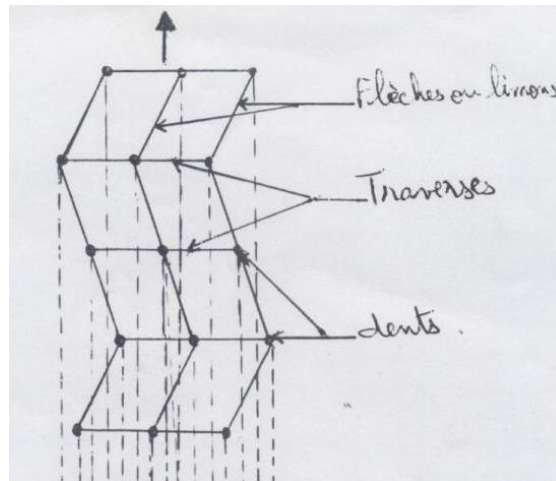 Flèches ou limons
Traverses
dents.